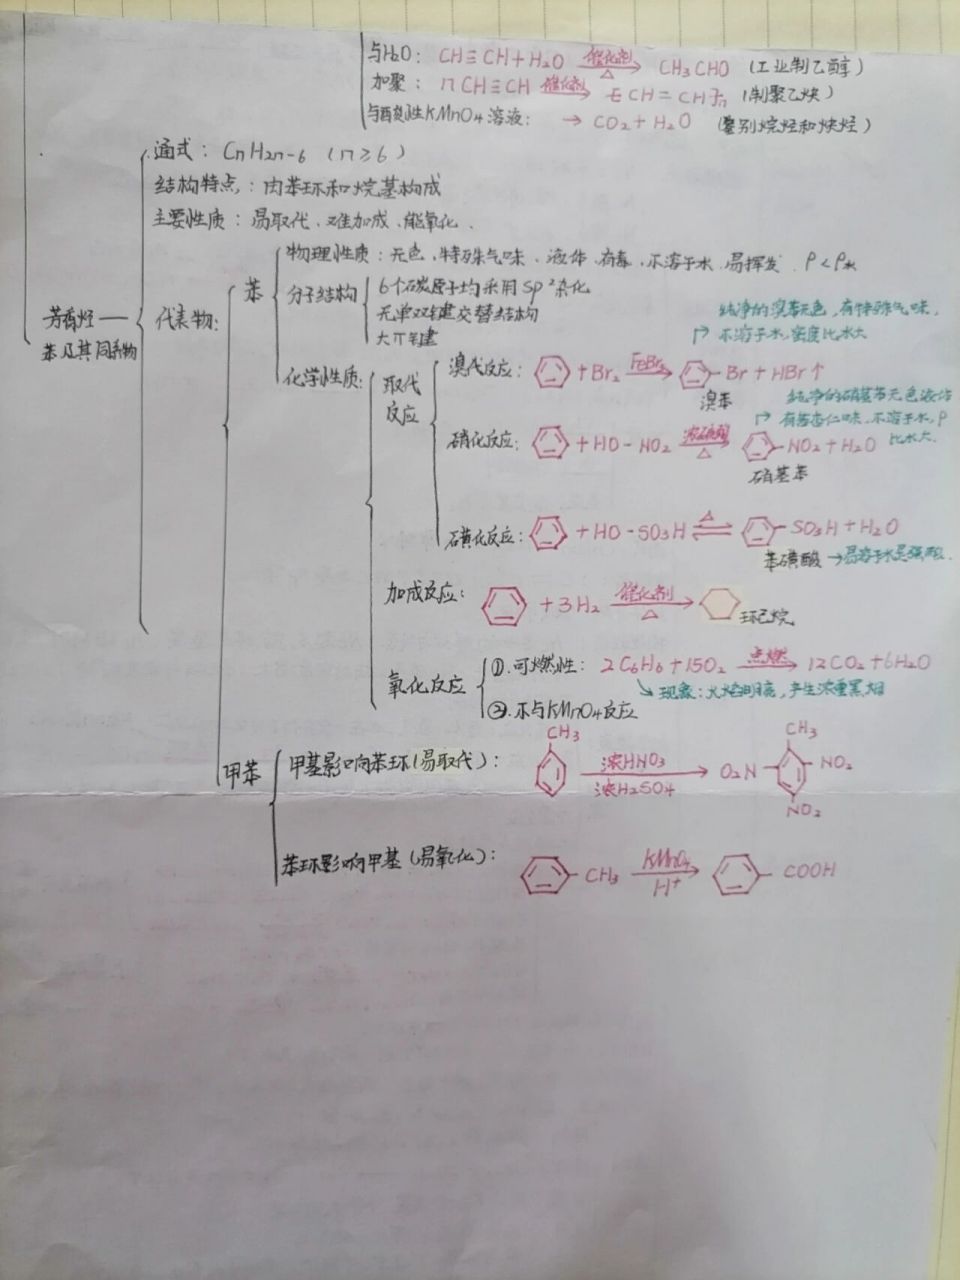 与H₂O: CH≡CH+H₂O 催化剂 △ → CH₃CHO (工业制乙醇)
加聚: nCH≡CH 催化剂 → ⁅CH=CH⁆n (制聚乙炔)
与酸性KMnO₄溶液: → CO₂+H₂O (鉴别烷烃和炔烃)
通式: CnH2n-6 (n≥6)
结构特点: 由苯环和烷基构成
主要性质: 易取代、难加成、能氧化.
芳香烃——
苯及其同系物
代表物:
苯
物理性质: 无色、特殊气味、液体、有毒、不溶于水、易挥发、ρ<ρ水
分子结构
6个碳原子均采用sp²杂化
无单双键交替结构
大π键
化学性质:
取代反应
纯净的溴苯无色,有特殊气味,
不溶于水,密度比水大
溴代反应: +Br₂ FeBr₃ → -Br + HBr↑
溴苯
纯净的硝基苯无色液体
有苦杏仁味,不溶于水,ρ
比水大.
硝化反应: +HO-NO₂ 浓硫酸 △ → -NO₂+H₂O
硝基苯
磺化反应: +HO-SO₃H △ ⇌ -SO₃H+H₂O
苯磺酸→易溶于水是强酸.
加成反应: +3H₂ 催化剂 △ → 环己烷
氧化反应
①.可燃性: 2C₆H₆+15O₂ 点燃 → 12CO₂+6H₂O
↘现象:火焰明亮,产生浓重黑烟
②.不与KMnO₄反应
甲苯
甲基影响苯环(易取代): CH₃ 浓HNO₃ 浓H₂SO₄ → CH₃ O₂N NO₂ NO₂
苯环影响甲基(易氧化): -CH₃ KMnO₄ H⁺ → -COOH